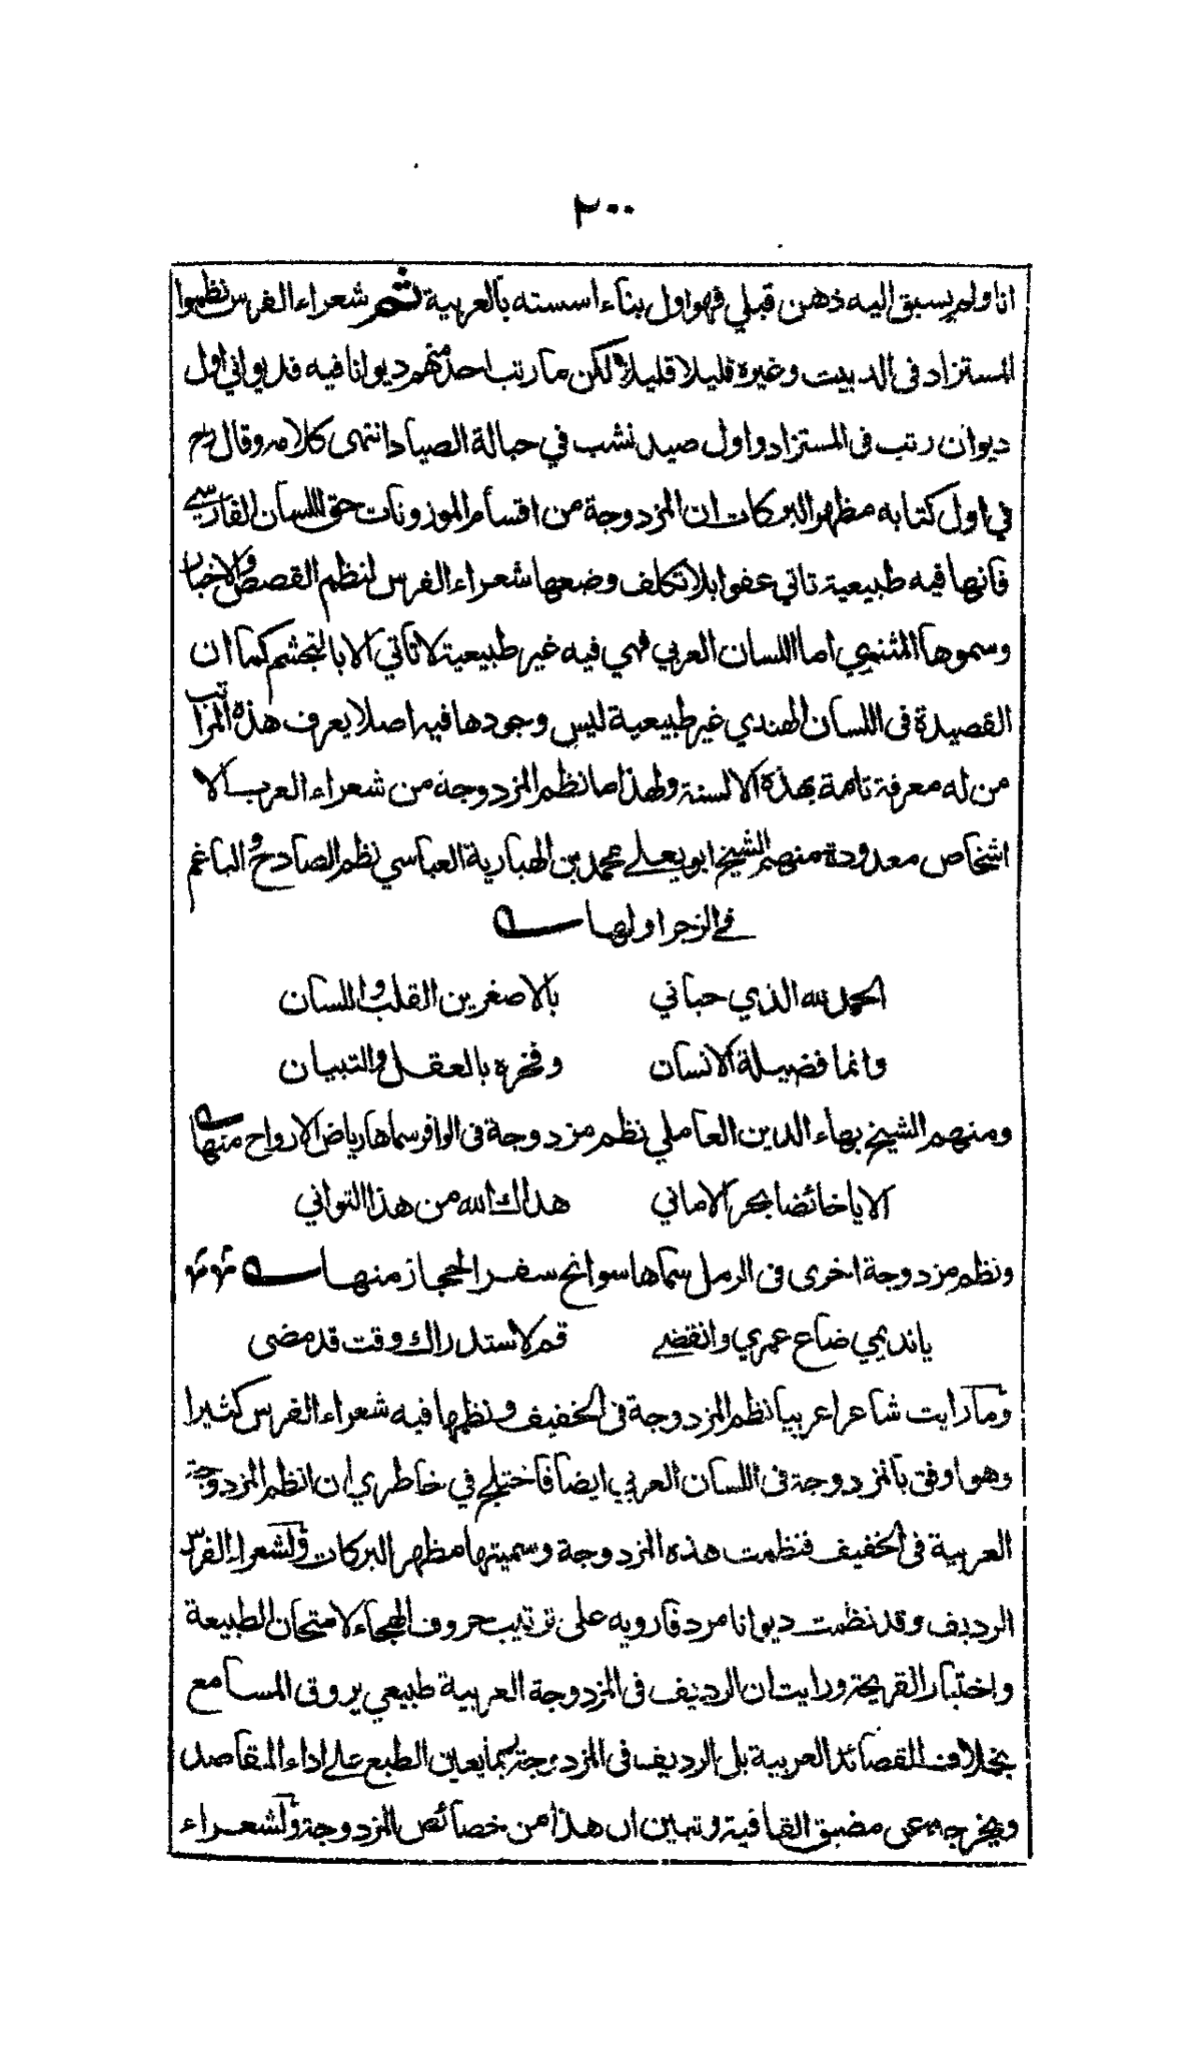 ٢٠٠
انا ولم يسبق اليه ذهن قبلي فهو اول بناء اسسته بالعربية ثم شعراء الفرس نظموا
المستزاد فى الدبيت وغيره قليلا قليلا ولكن ما رتب احد منهم ديوانا فيه فديواني اول
ديوان رتب فى المستزاد واول صيد نشب في حبالة الصياد انتهى كلامه وقال رح
في اول كتابه مظهر البركات ان المزدوجة من اقسام الموزونات حق اللسان الفارسي
فانها فيه طبيعية تاتي عفوا بلا تكلف وضعها شعراء الفرس لنظم القصص والاخبار
وسموها المثنوي اما اللسان العربي فهي فيه غير طبيعية لا تاتي الا بالتجشم كما ان
القصيدة فى اللسان الهندي غير طبيعية ليس وجودها فيه اصلا يعرف هذه المراتب
من له معرفة تامة بهذه الالسنة ولهذا ما نظم المزدوجة من شعراء العرب الا
اشخاص معدودة منهم الشيخ ابو يعلى محمد بن الهبارية العباسي نظم الصادح والباغم
في الرجز اولها
الحمد لله الذي حباني بالاصغرين القلب واللسان
وانما فضيلة الانسان وفخره بالعقل والتبيان
ومنهم الشيخ بهاء الدين العاملي نظم مزدوجة فى الوافر سماها رياض الارواح منها
الا يا خائضا بحر الاماني هداك الله من هذا التواني
ونظم مزدوجة اخرى فى الرمل سماها سوانح سفر الحجاز منها
يا نديمي ضاع عمري وانقضى قم لاستدراك وقت قد مضى
وما رايت شاعرا عربيا نظم المزدوجة فى الخفيف ونظمها فيه شعراء الفرس كثيرا
وهو اوفق بالمزدوجة فى اللسان العربي ايضا فاختلج في خاطري ان انظم المزدوجة
العربية فى الخفيف فنظمت هذه المزدوجة وسميتها مظهر البركات ولشعراء الفرس
الرديف وقد نظمت ديوانا مردفا رويه على ترتيب حروف الهجاء لامتحان الطبيعة
واختبار القريحة ورايت ان الرديف فى المزدوجة العربية طبيعي يروق المسامع
بخلاف القصائد العربية بل الرديف فى المزدوجة بما يعين الطبع على اداء المقاصد
ويخرجه عن مضيق القافية وتبين ان هذا من خصائص المزدوجة ولشعراء